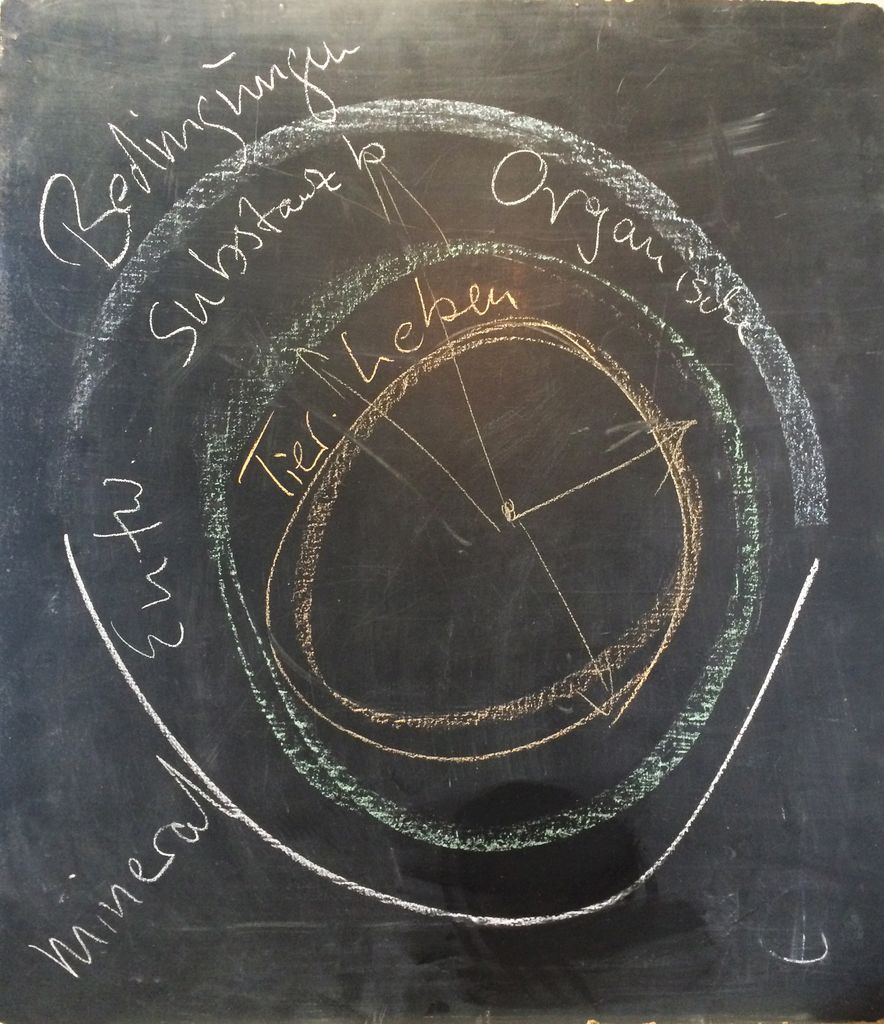 Bedingungen
Substanz
Organische
Tier. Leben
Entw.
Mineral